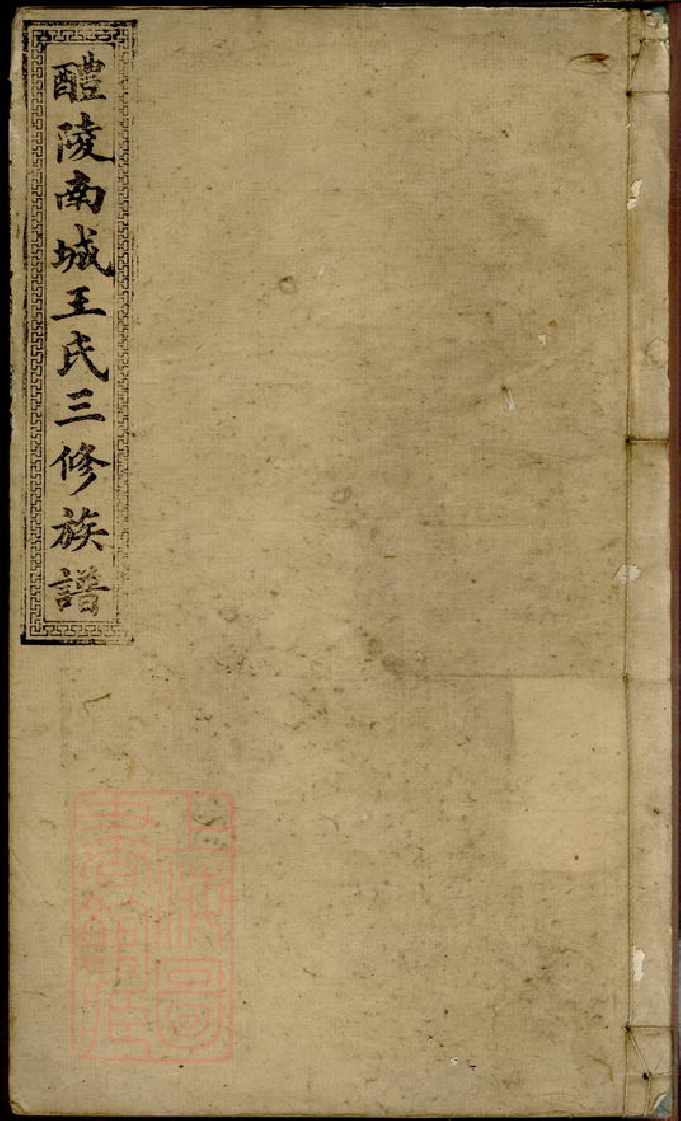 醴陵南城王氏三修族譜
上海圖
書館藏